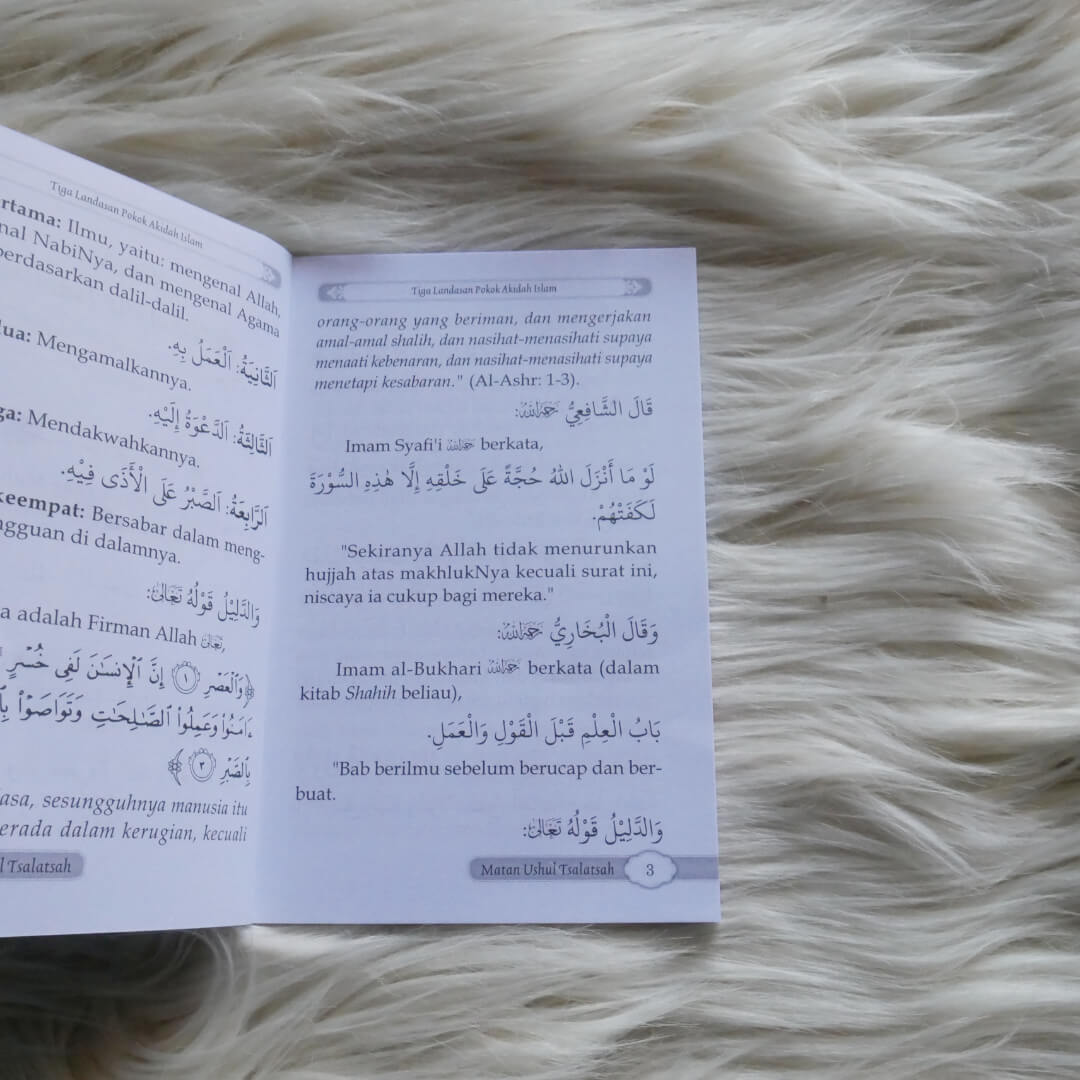 Tiga Landasan Pokok Akidah Islam
Ilmu, yaitu: mengenal Allah,
NabiNya, dan mengenal Agama
berdasarkan dalil-dalil.
اَلثَّانِيَةُ: اَلْعَمَلُ بِهِ.
Mengamalkannya.
اَلثَّالِثَةُ: اَلدَّعْوَةُ إِلَيْهِ.
Mendakwahkannya.
اَلرَّابِعَةُ: اَلصَّبْرُ عَلَى الْأَذَى فِيْهِ.
keempat: Bersabar dalam meng-
di dalamnya.
وَالدَّلِيْلُ قَوْلُهُ تَعَالَى:
adalah Firman Allah
﴿وَٱلۡعَصۡرِ ١ إِنَّ ٱلۡإِنسَٰنَ لَفِي خُسۡرٍ
ءَامَنُواْ وَعَمِلُواْ ٱلصَّٰلِحَٰتِ وَتَوَاصَوۡاْ
بِٱلصَّبۡرِ ٣ ﴾
sesungguhnya manusia itu
dalam kerugian, kecuali
Tsalatsah
Tiga Landasan Pokok Akidah Islam
orang-orang yang beriman, dan mengerjakan
amal-amal shalih, dan nasihat-menasihati supaya
menaati kebenaran, dan nasihat-menasihati supaya
menetapi kesabaran." (Al-Ashr: 1-3).
قَالَ الشَّافِعِيُّ رَحِمَهُ اللهُ:
Imam Syafi'i رَحِمَهُ اللهُ berkata,
لَوْ مَا أَنْزَلَ اللهُ حُجَّةً عَلَى خَلْقِهِ إِلَّا هٰذِهِ السُّوْرَةَ
لَكَفَتْهُمْ.
"Sekiranya Allah tidak menurunkan
hujjah atas makhlukNya kecuali surat ini,
niscaya ia cukup bagi mereka."
وَقَالَ الْبُخَارِيُّ رَحِمَهُ اللهُ:
Imam al-Bukhari رَحِمَهُ اللهُ berkata (dalam
kitab Shahih beliau),
بَابُ الْعِلْمِ قَبْلَ الْقَوْلِ وَالْعَمَلِ.
"Bab berilmu sebelum berucap dan ber-
buat.
وَالدَّلِيْلُ قَوْلُهُ تَعَالَى:
Matan Ushul Tsalatsah 3